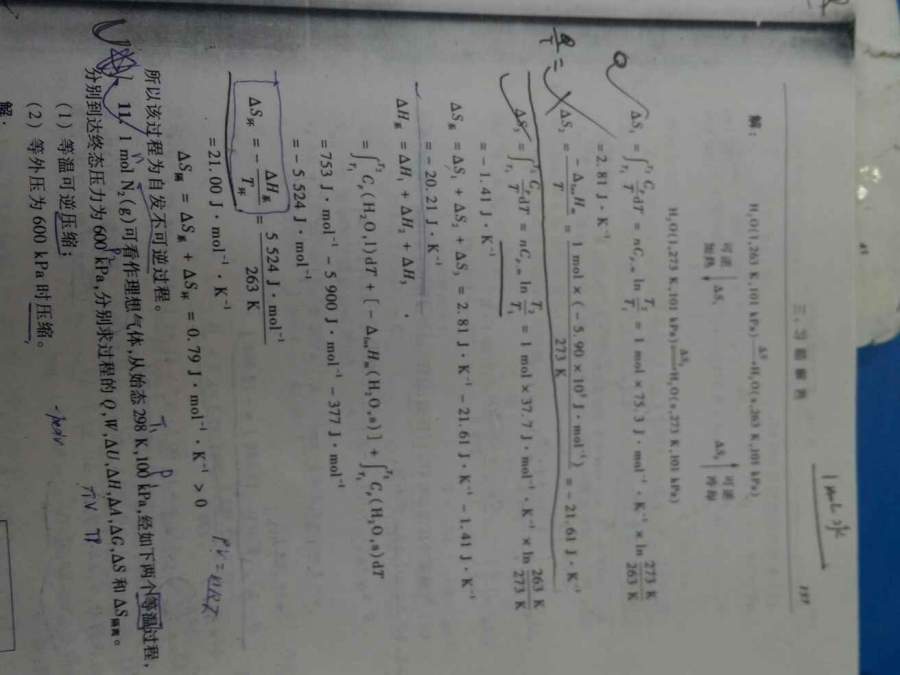 三、习题解答
137
1mol水
解：
H₂O(l,263 K,101 kPa)—ΔS→H₂O(s,263 K,101 kPa)
可逆加热 ΔS₁
ΔS₃ 可逆冷却
H₂O(l,273 K,101 kPa)—ΔS₂→H₂O(s,273 K,101 kPa)
ΔS₁ = ∫_{T₁}^{T₂} C_p/T dT = nC_{p,m} ln T₂/T₁ = 1 mol × 75.3 J·mol⁻¹·K⁻¹ × ln 273 K/263 K
= 2.81 J·K⁻¹
ΔS₂ = −Δ_{fus}H_m/T = 1 mol × (−5.90 × 10³ J·mol⁻¹)/273 K = −21.61 J·K⁻¹
ΔS₃ = ∫_{T₁}^{T₂} C_p/T dT = nC_{p,m} ln T₂/T₁ = 1 mol × 37.7 J·mol⁻¹·K⁻¹ × ln 263 K/273 K
= −1.41 J·K⁻¹
ΔS系 = ΔS₁ + ΔS₂ + ΔS₃ = 2.81 J·K⁻¹ − 21.61 J·K⁻¹ − 1.41 J·K⁻¹
= −20.21 J·K⁻¹
ΔH系 = ΔH₁ + ΔH₂ + ΔH₃
= ∫_{T₁}^{T₂} C_p(H₂O,l)dT + [−Δ_{fus}H_m(H₂O,s)] + ∫_{T₂}^{T₁} C_p(H₂O,s)dT
= 753 J·mol⁻¹ − 5 900 J·mol⁻¹ − 377 J·mol⁻¹
= −5 524 J·mol⁻¹
ΔS环 = −ΔH系/T环 = 5 524 J·mol⁻¹/263 K
= 21.00 J·mol⁻¹·K⁻¹
ΔS隔 = ΔS系 + ΔS环 = 0.79 J·mol⁻¹·K⁻¹ > 0
PV=nRT
所以该过程为自发不可逆过程。
11. 1 mol N₂(g)可看作理想气体,从始态 298 K,100 kPa,经如下两个等温过程,
分别到达终态压力为 600 kPa,分别求过程的 Q,W,ΔU,ΔH,ΔA,ΔG,ΔS 和 ΔS隔离。
(1) 等温可逆压缩;
(2) 等外压为 600 kPa 时压缩。
解：